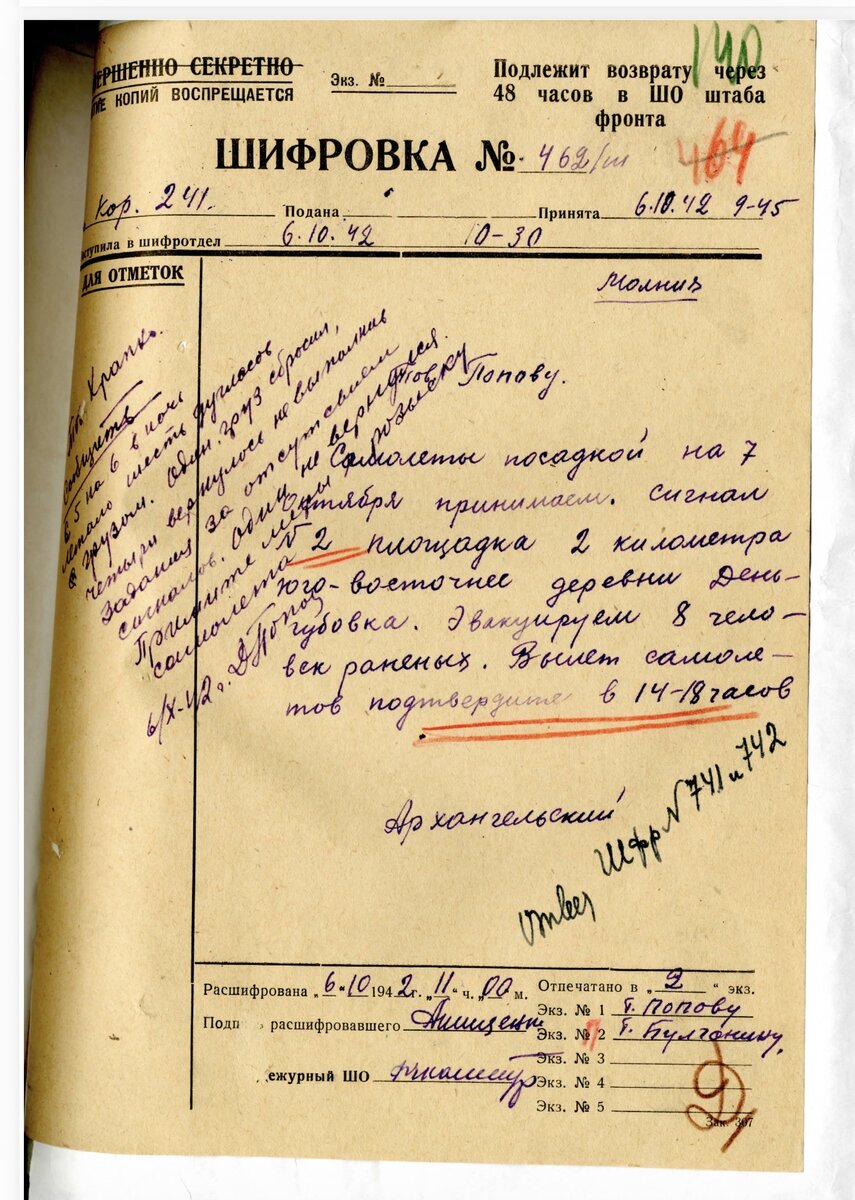 ВЕРШЕННО СЕКРЕТНО
ТИЕ КОПИЙ ВОСПРЕЩАЕТСЯ
Экз. №
Подлежит возврату через
48 часов в ШО штаба
фронта
140
ШИФРОВКА № 462/ш
464
Кор. 241.
Подана
Принята 6.10.42 9-45
ступила в шифротдел 6.10.42 10-30
ДЛЯ ОТМЕТОК
Молния
Тов Попову.
Самолеты посадкой на 7
октября принимаем. Сигнал
2 площадка 2 километра
юго-восточнее деревни День-
губовка. Эвакуируем 8 чело-
век раненых. Вылет самоле-
тов подтвердите в 14-18 часов
Архангельский
Тов. Крапк
Сообщите
в 5 на 6 в ночь
летало шесть дугласов
с грузом. Один груз сбросил,
четыре вернулось не выполнив
задания за отсутствием
сигналов. Один не вернулся.
Примите меры розыску
самолета
6/X-42 г. Д Попов
Ответ Шфр N 741 и 742
Расшифрована „6" 10 1942 г. „11" ч. „00" м.
Отпечатано в „2" экз.
Экз. № 1 т. Попову
Подп расшифровавшего
Экз. № 2 т. Булганину,
Экз. № 3
ежурный ШО
Экз. № 4
Экз. № 5
Зак. 307